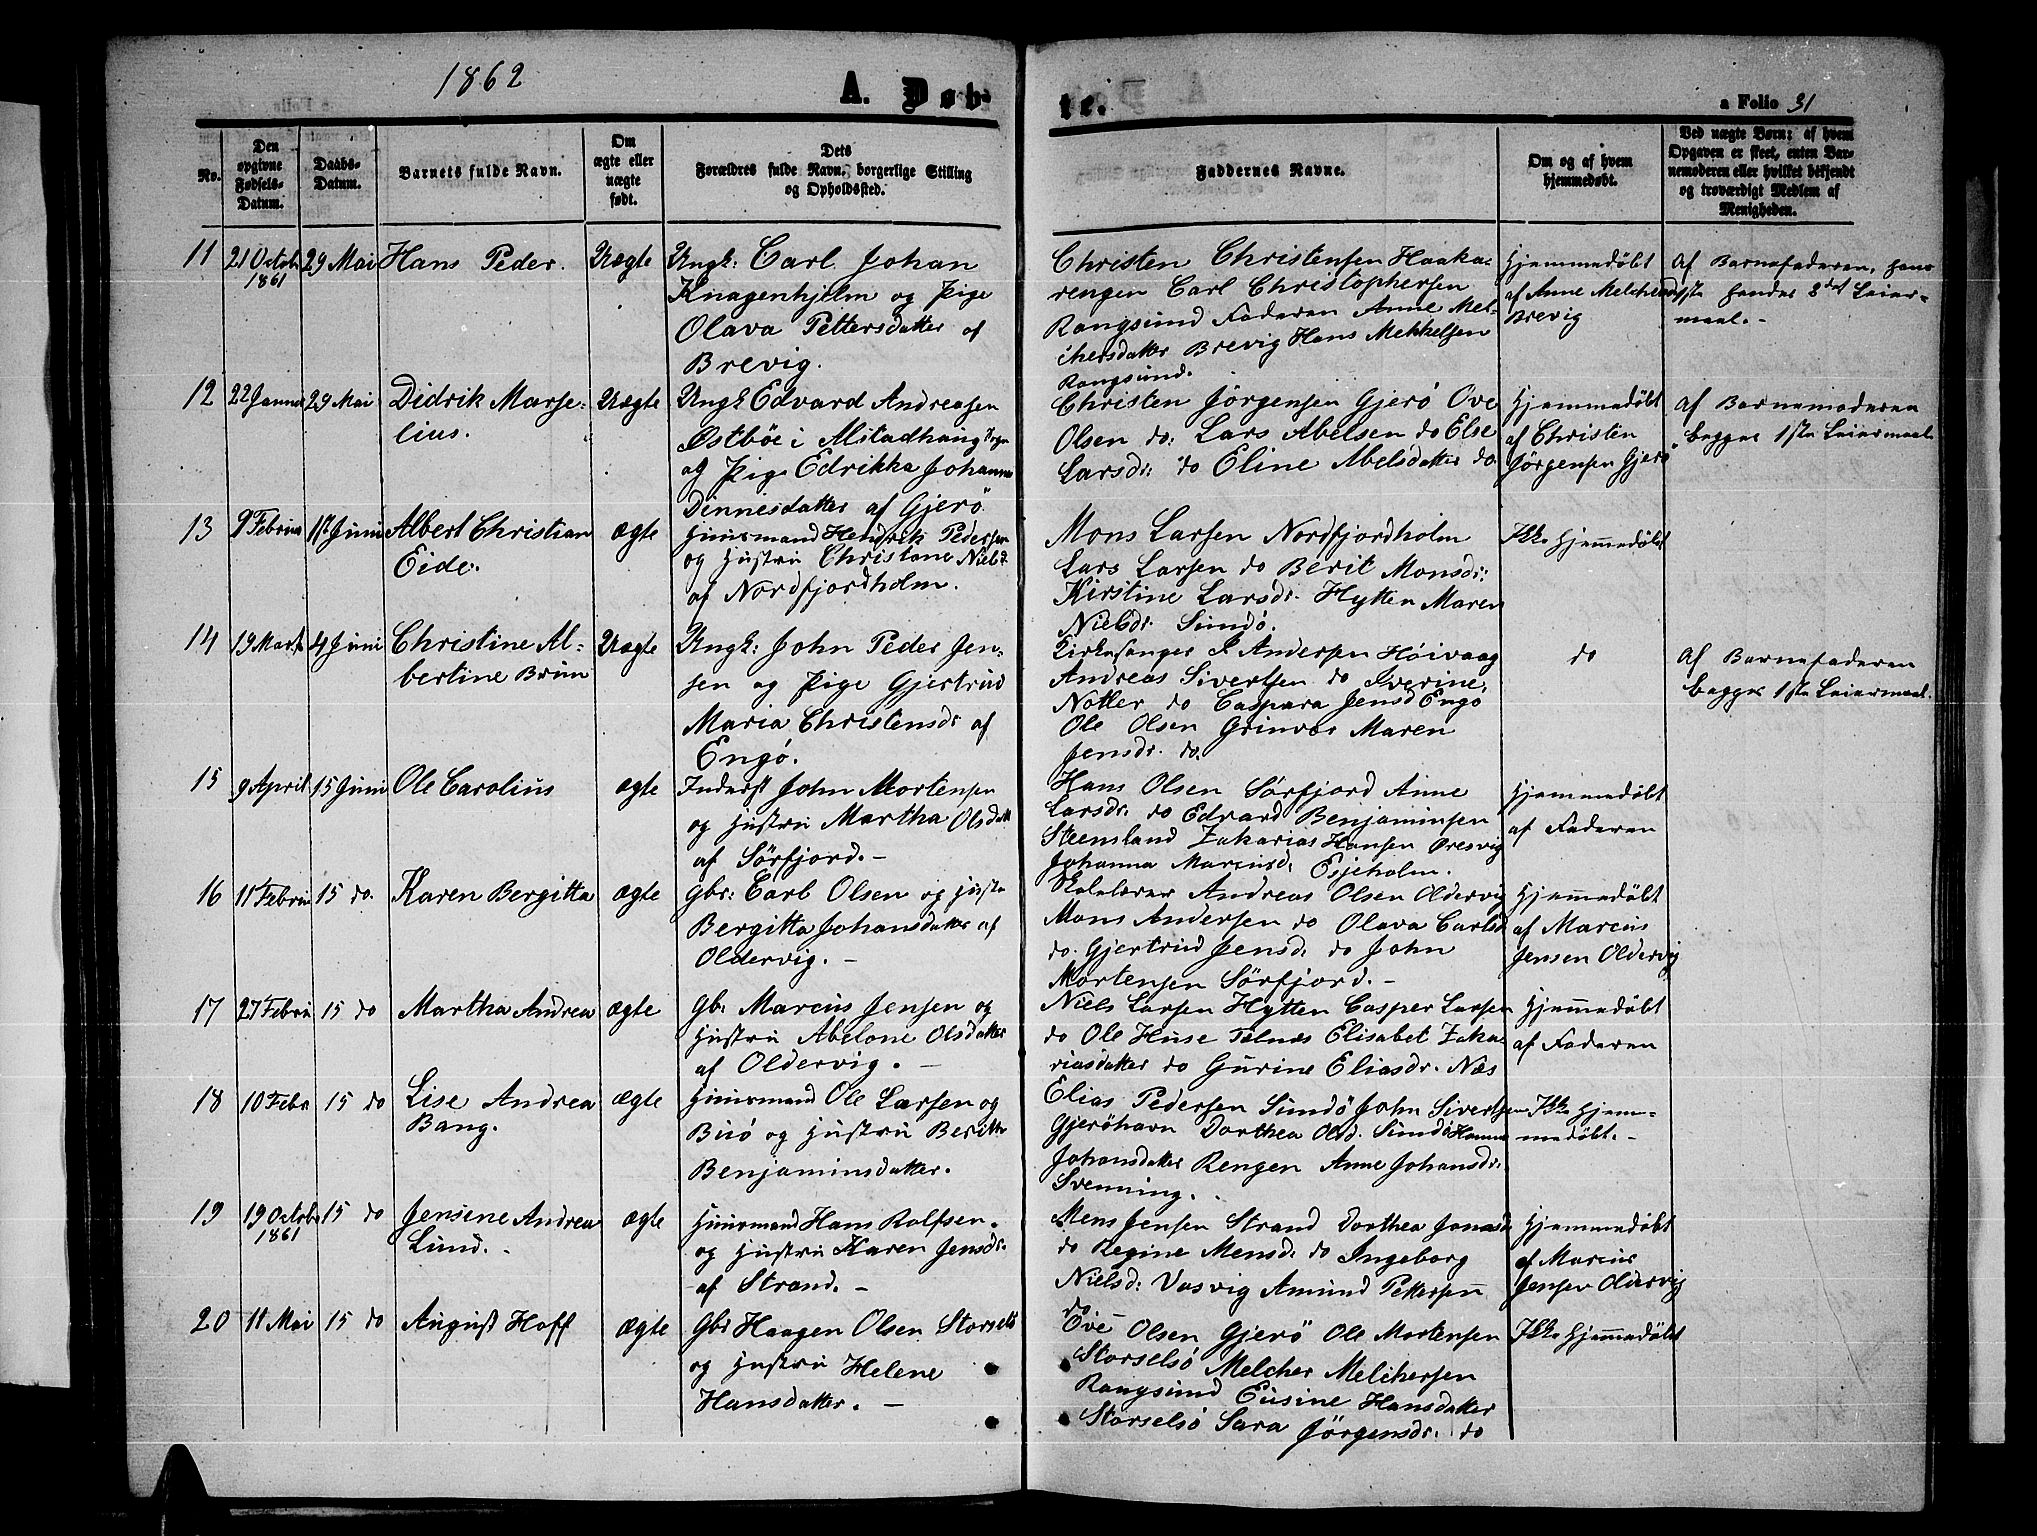 1862
A. Døb-
te.
a Folio 31
No.
Den opgivne Fødsels-Datum.
Daabs-Datum.
Barnets fulde Navn.
Om ægte eller uægte født.
Dets Forældres fulde Navn, borgerlige Stilling og Opholdssted.
Faddernes Navne.
Om og af hvem hjemmedøbt.
Ved uægte Børn: af hvem Opgaven er skeet, enten Barnemoderen eller hvilket bekjendt og troværdigt Medlem af Menigheden.
11 21 Octob: 29 Mai Hans Peder. Uægte Ungk: Carl Johan
1861
Knagenhjelm og Pige
Olava Pettersdatter af
Brevig.
Christen Christensen Haaka-
rengen Carl Christophersen
Rangsund Faderen Anne Mel-
chersdatter Brevig Hans Mekkelsen
Rangsund.
Hjemmedøbt
af Anne Melchersd
Brevig
Af Barnefaderen, hans
1ste hendes 3det Leier-
maal.-
12 22 Janua 29 Mai Didrik Marse- Uægte Ungk Edvard Andreasen
lius.
Østbøe i Alstadhaug
og Pige Edrikka Johanna
Dinnesdatter af Gjerö
Christen Jörgensen Gjerö Ove
Olsen do: Lars Abelsen do Else
Larsdr: do Eline Abelsdatter do
Hjemmedøbt
af Christen
Jørgensen Gjerø
Af Barnemoderen
begges 1ste Leiermaal
13 9 Februa 1st Juni Albert Christian ægte Huusmand Hendrik Pedersen
Eide.
og Hustru Christane Nielsd
af Nordfjordholm.
Mons Larsen Nordfjordholm
Lars Larsen do Berit Monsdr:
Kirstine Larsdr. Hytten Maren
Nielsdr. Sundö.
Ikke Hjemmedøbt
14 19 Marts 4 Juni Christine Al- Uægte Ungk: John Peder Jen-
bertine Bruun
sen og Pige Gjertrud
Maria Christensdr af
Engö.
Kirkesanger J. Andersen Höivaag
Andreas Sivertsen do Iverine
Notler do Caspara Jensd Engö
Ole Olsen Grinvær Maren
Jensdr. do.
do
Af Barnefaderen
begges 1ste Leiermaal.
15 9 April 15 Juni Ole Carolius ægte Inderst John Mortensen
og Hustru Martha Olsdatt
af Sörfjord.-
Hans Olsen Sörfjord Anne
Larsdr. do Edvard Benjaminsen
Steensland Zakarias Hansen Presvig
Johanna Marcusd. Esjeholm.
Hjemmedøbt
af Faderen
16 11 Februa 15 do. Karen Bergitta ægte Gbr: Carl Olsen og Hustru
Bergitta Johansdatter af
Oldervig.-
Skolelærer Andreas Olsen Oldervig
Mons Andersen do Olava Carlsd
do. Gjertrud Jensd. do John
Mortensen Sörfjord.-
Hjemmedøbt
af Marcus
Jensen Oldervig
17 27 Februa 15 do Martha Andrea ægte Gbr Marcus Jensen og
Hustru Abelone Olsdatter
af Oldervig. -
Niels Larsen Hytten Casper Larsen
do Ole Huse Telnes Elisabet Zaka
riasdatter do Gurine Eliasdr. Næs
Hjemmedøbt
af Faderen
18 10 Febr 15 do Lise Andrea ægte Huusmand Ole Larsen og
Bang.
Buö og Hustru Beritte
Benjaminsdatter.
Elias Pedersen Sundö John Sivertsen
Gjeröhavn Dorthea Olsd. Sundö Hanna
Johansdatter Rengen Anne Johansdr.
Svenning.
Ikke Hjem-
medøbt.-
19 19 Octob 15 do Jensine Andrea ægte Huusmand Hans Rolfsen.
1861
Lund.
og Hustru Karen Jensdr.
af Strand.-
Mens Jensen Strand Dorthea Jonasd
do Regine Mensd. do Ingeborg
Nielsd: Vasvig Amund Pettersen
do
Hjemmedøbt
af Marcus
Jensen Oldervig
20 11 Mai 15 do August Hoff ægte Gbr Haagen Olsen Storselö
og Hustru Helene
Hansdatter. -
Ove Olsen Gjerö Ole Mortensen
Storselsö Melcher Melchersen
Rangsund Eusine Hansdatter
Storselsö Sara Jörgensdr. do
Ikke Hjemmedøbt